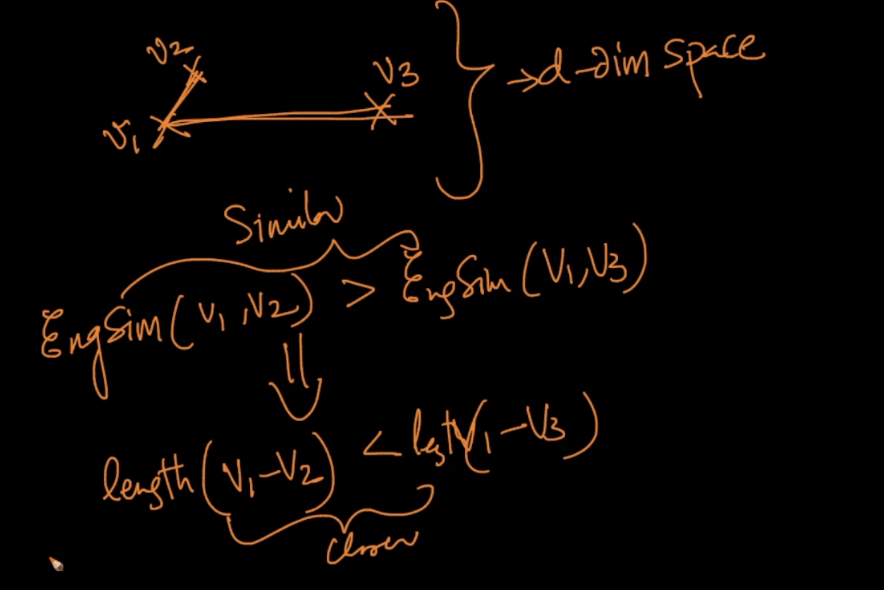 v2
v3
v1
→d-dim space
Similar
EngSim(v1,v2) > EngSim(v1,v3)
⇓
length(v1-v2) < length(v1-v3)
closer